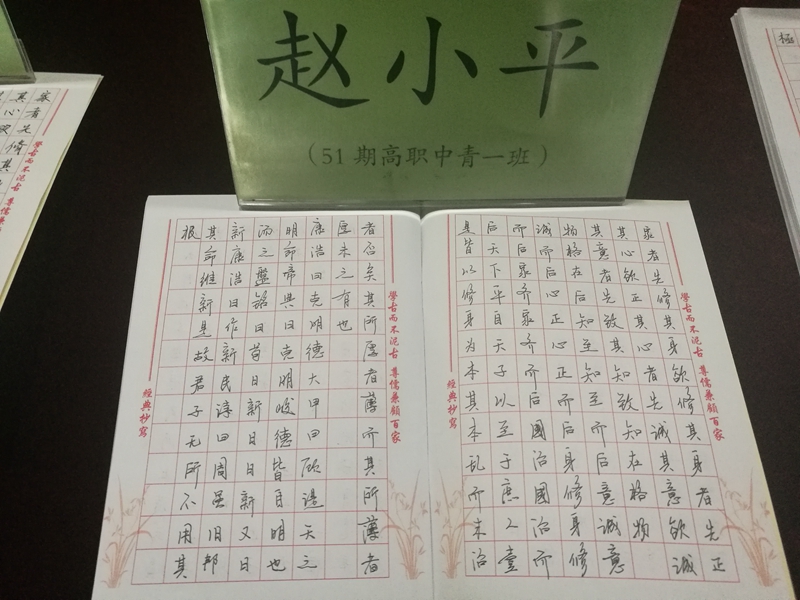 赵小平
（51期高职中青一班）
家者先修其身欲修其身者先正
其心欲正其心者先誠其意欲誠
其意者先致其知致知在格物
物格而后知至知至而后意誠意
誠而后心正心正而后身修身修
而后家齐家齐而后國治國治而
后天下平自天子以至于庶人壹
是皆以修身为本其本乱而末治
者否矣其所厚者薄而其所薄者
厚未之有也
康浩曰克明德大甲曰顾諟天之
明命帝典曰克明峻德皆自明也
湯之盤銘曰苟日新日日新又日
新康浩曰作新民詩曰周虽旧邦
其命维新是故君子无所不用其
极
學古而不泥古 尊儒兼顧百家
經典抄寫
學古而不泥古 尊儒兼顧百家
經典抄寫
學古而不泥古 尊儒
極